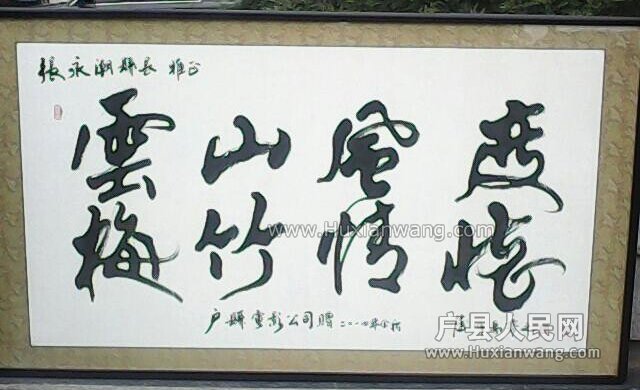 張永潮縣長 雅正
雲山風度
梅竹情懷
户縣電影公司贈 二〇一四年金秋
www.Huxianwang.com
户县人民网
www.Huxianwang.com